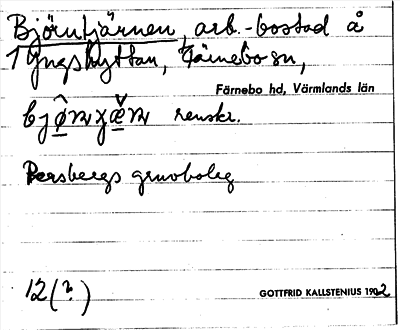 Björntjärnen, arb.-bostad å
Yngshyttan, Färnebo sn,
Färnebo hd, Värmlands län
renskr.
Persbergs gruvbolag
12(?)
GOTTFRID KALLSTENIUS 1902